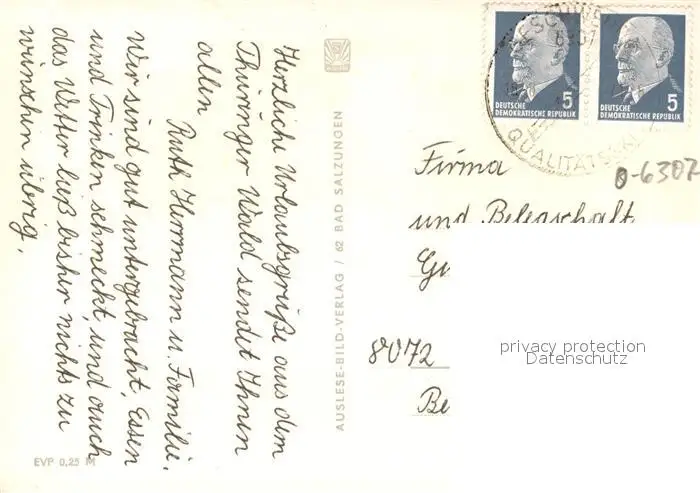 Herzliche Urlaubsgrüße aus dem
Thüringer Wald sendet Ihnen
allen
Ruth Herrmann u. Familie.
Wir sind gut untergebracht, Essen
und Trinken schmeckt, und auch
das Wetter ließ bisher nichts zu
wünschen übrig.
EVP 0,25 M
AUSLESE-BILD-VERLAG / 62 BAD SALZUNGEN
5
DEUTSCHE
DEMOKRATISCHE REPUBLIK
5
DEUTSCHE
DEMOKRATISCHE REPUBLIK
QUALITÄTS
0-6307
Firma
und Belegschaft
Gu
8072
Be
privacy protection
Datenschutz